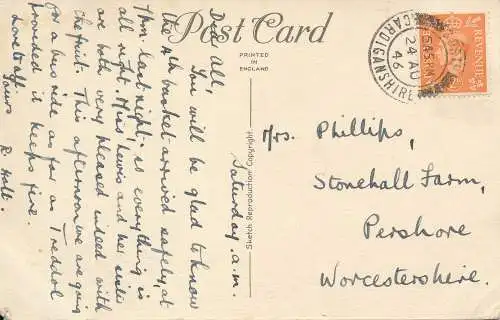 Post Card
PRINTED
IN
ENGLAND
Sketch Reproduction Copyright.
CARDIGANSHIRE
5 45 PM
24 AU
46
REVENUE
Saturday a.m.
Dear All,
You will be glad to know
the 4th basket arrived safely, at
7pm last night, so everything is
all right. Miss Lewis and her sister
are both very pleased indeed with
the fruit. This afternoon we are going
for a bus ride as far as Treddol
provided it keeps fine.
Love to all
Yours
R. Holt.
Mrs. Phillips,
Stonehall Farm,
Pershore
Worcestershire.